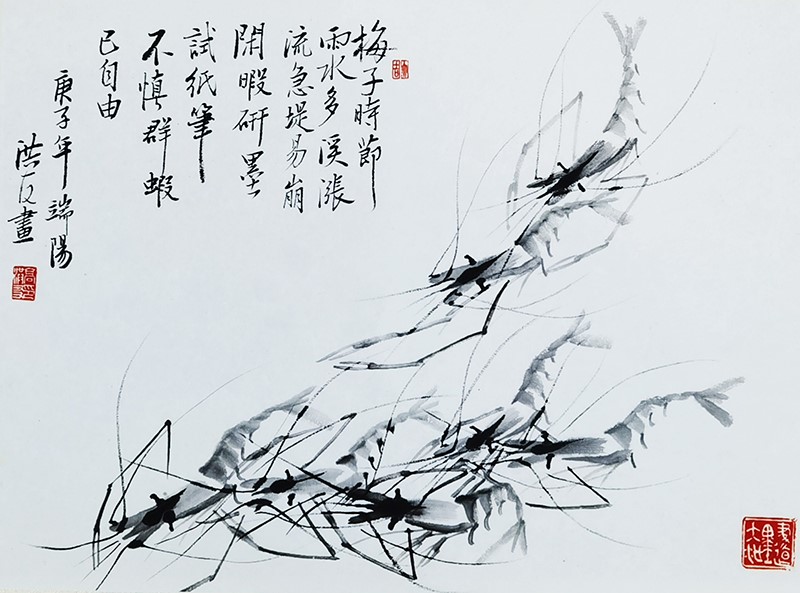 梅子時節
雨水多溪漲
流急堤易崩
閑暇研墨
試紙筆
不慎群蝦
已自由
庚子年端陽
洪
畫